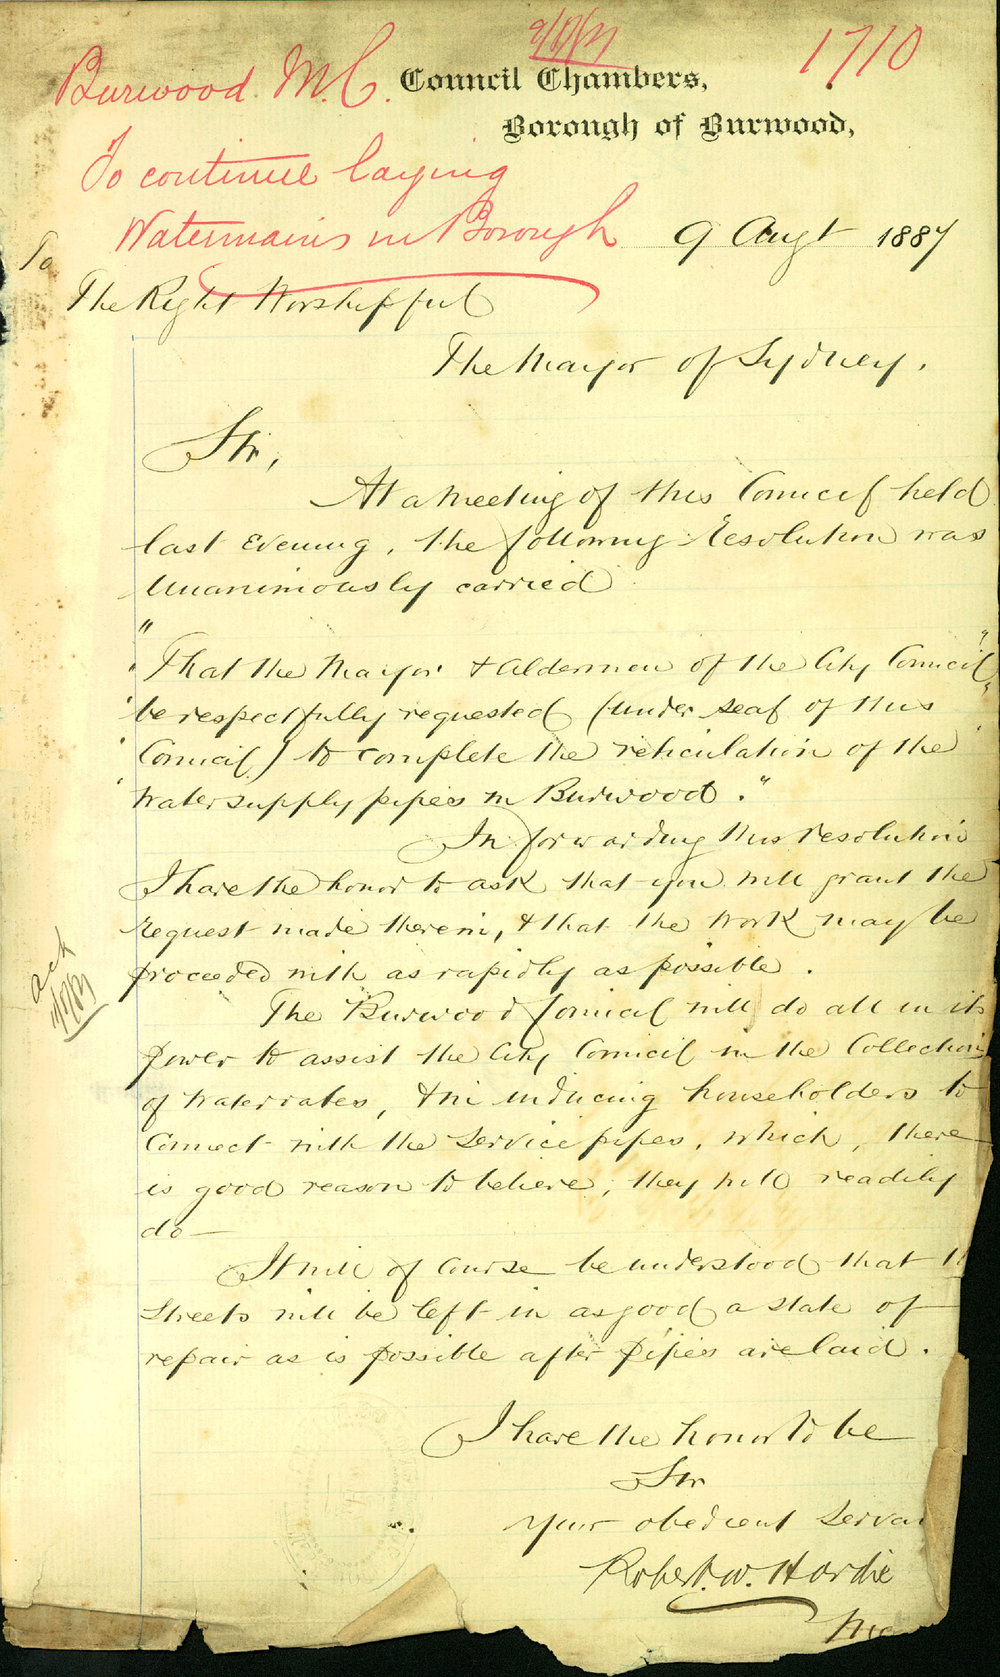 9/8/87
1710
Burwood M.C.
Council Chambers,
Borough of Burwood,
To continue laying
Watermains in Borough
9 Augt 1887
To
The Right Worshipful
The Mayor of Sydney.
Sir,
At a Meeting of this Council held
last Evening, the following Resolution was
Unanimously carried
"
"That the Mayor & Aldermen of the City Council"
"be respectfully requested (under seal of this "
"Council) to complete the reticulation of the "
"Water supply pipes in Burwood."
In forwarding this resolution
I have the honor to ask that you will grant the
request made therein, & that the work may be
proceeded with as rapidly as possible.
ack
The Burwood Council will do all in its
power to assist the City Council in the Collection
of Water rates, & in inducing householders to
Connect with the Service pipes, which, there
is good reason to believe, they will readily
do—
It will of Course be understood that th
Streets will be left in as good a state of
repair as is possible after pipes are laid.
I have the honor to be
Sir
Your obedient Servan
Robert. W. Hardie